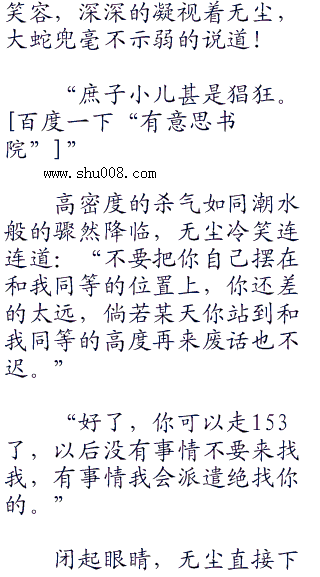 笑容，深深的凝视着无尘，
大蛇兜毫不示弱的说道！
“庶子小儿甚是猖狂。
[百度一下“有意思书
院”]”
www.shu008.com
高密度的杀气如同潮水
般的骤然降临，无尘冷笑连
连道：“不要把你自己摆在
和我同等的位置上，你还差
的太远，倘若某天你站到和
我同等的高度再来废话也不
迟。”
“好了，你可以走153
了，以后没有事情不要来找
我，有事情我会派遣绝找你
的。”
闭起眼睛，无尘直接下